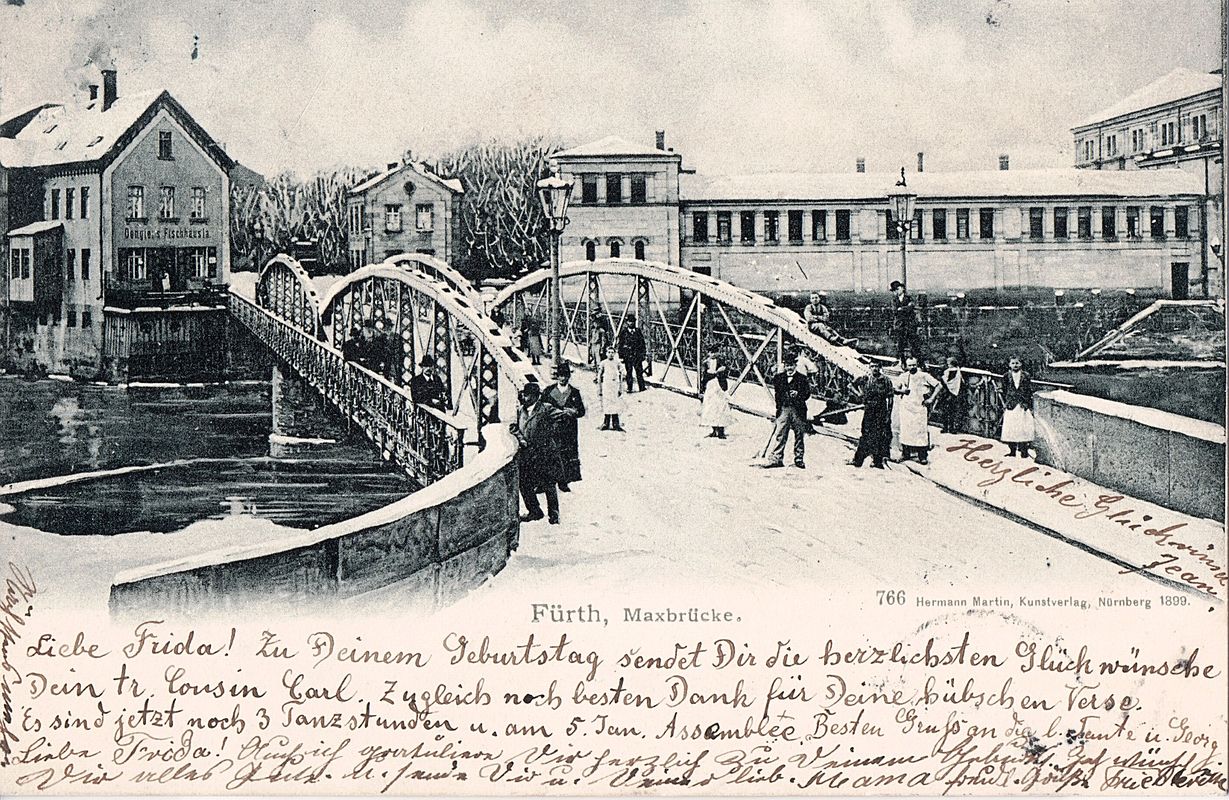 Fischhaus
Herzliche Glückwünsche
Jean.
Fürth, Maxbrücke.
766 Hermann Martin, Kunstverlag, Nürnberg 1899.
Liebe Frida! Zu Deinem Geburtstag sendet Dir die herzlichsten Glückwünsche
Dein tr. Cousin Carl. Zugleich noch besten Dank für Deine hübschen Verse.
Es sind jetzt noch 3 Tanzstunden u. am 5. Jan. Assemblée. Besten Gruß an die l. Tante u. Georg
Liebe Frida! Auch ich gratuliere Dir herzlich zu Deinem
Dir alles Gute u. sende Dir u. Deiner lieb. Mama